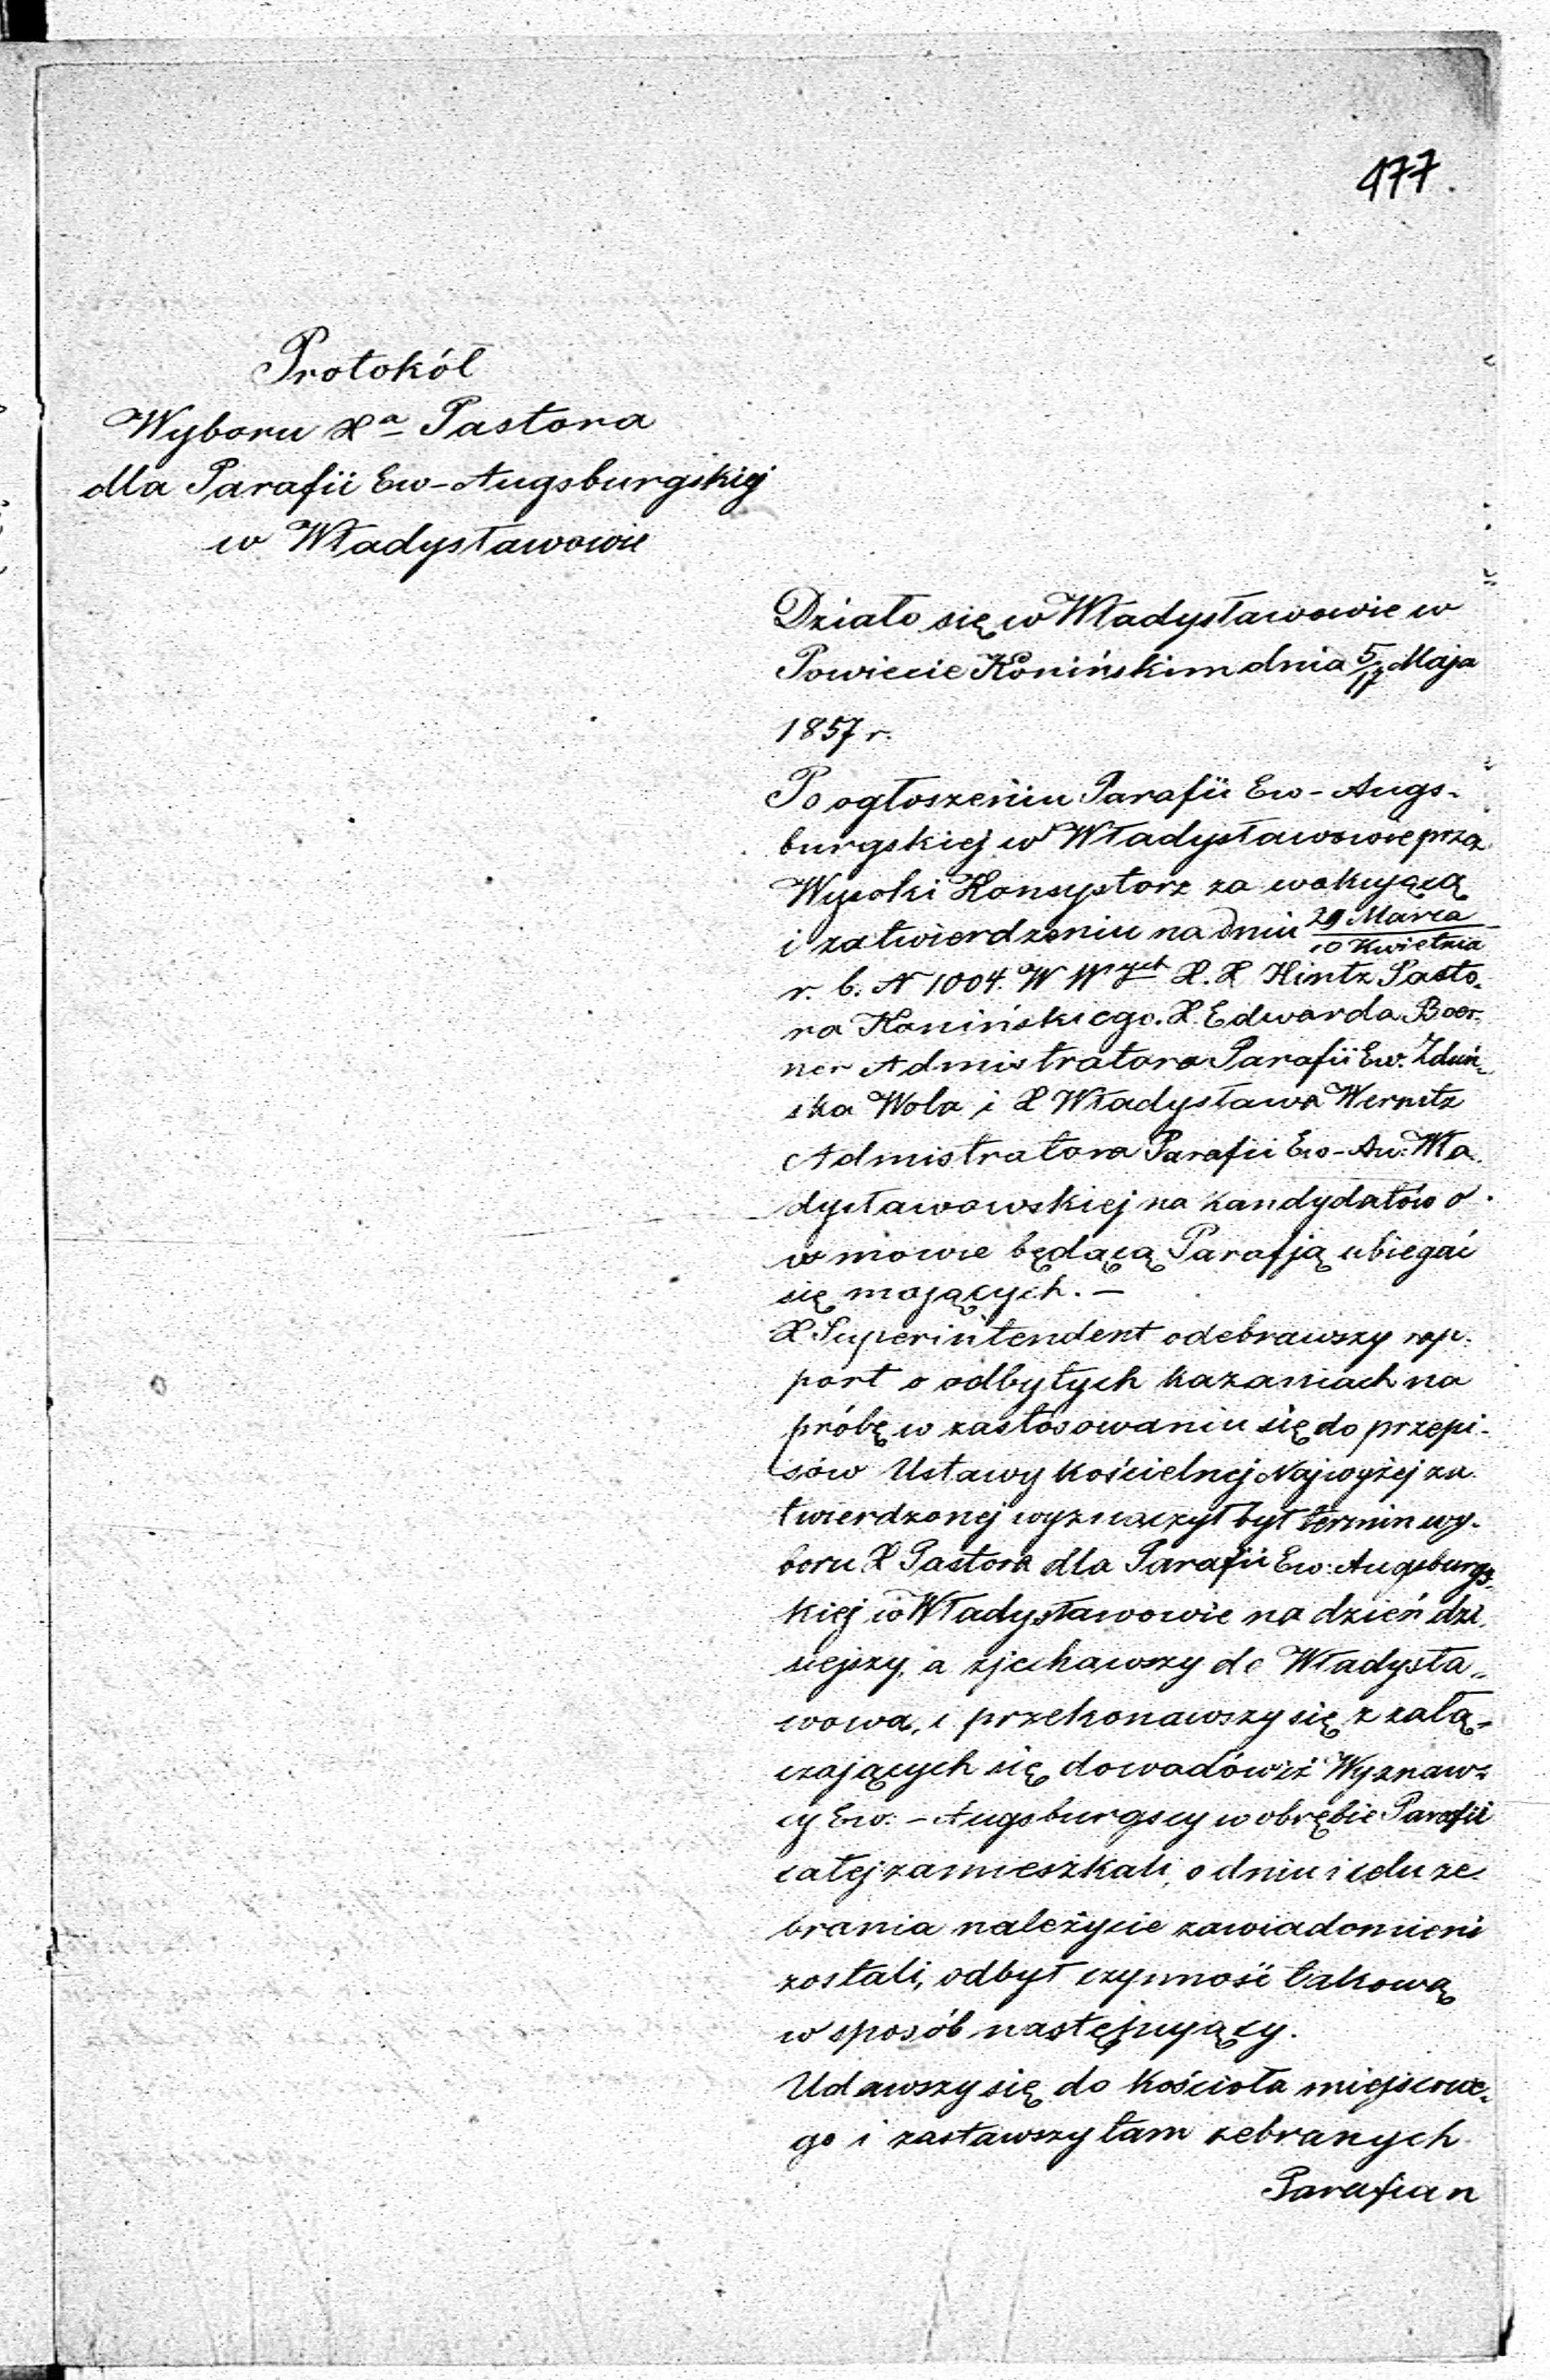 477.
Protokół
Wyboru Xa Pastora
dla Parafii Ew-Augsburgskiej
w Władysławowie
Działo się w Władysławowie w
Powiecie Konińskim dnia 5/17 Maja
1857 r.
Po ogłoszeniu Parafii Ew-Augs-
burgskiej w Władysławowie prze
Wysoki Konsystorz za wakującą
i zatwierdzeniu na dniu 29 Marca / 10 Kwietnia
r. b. N 1004. W Wych X. X Hintz Pasto-
ra Konińskiego. X. Edwarda Boer-
ner Admistratora Parafii Ew. Zduń-
ska Wola i X Władysława Wernitz
Admistratora Parafii Ew-Au: Wła-
dysławowskiej na kandydatów o
w mowie będącą Parafją ubiegać
się mających. —
X. Superintendent odebrawszy rap-
port o odbytych kazaniach na
próbę w zastosowaniu się do przepi-
sów Ustawy kościelnej Najwyżej za
twierdzonej wyznaczył był termin wy-
boru X Pastora dla Parafii Ew: Augsburgs-
kiej w Władysławowie na dzień dzi-
siejszy, a zjechawszy do Władysła-
wowa, i przekonawszy się z załą-
czających się dowodów iż Wyznaw-
cy Ew: - Augsburgscy w obrębie Parafii
całej zamieszkali, o dniu i celu ze-
brania należycie zawiadomieni
zostali, odbył czynność takową
w sposób następujący.
Udawszy się do Kościoła miejscowe-
go i zastawszy tam zebranych
Parafian